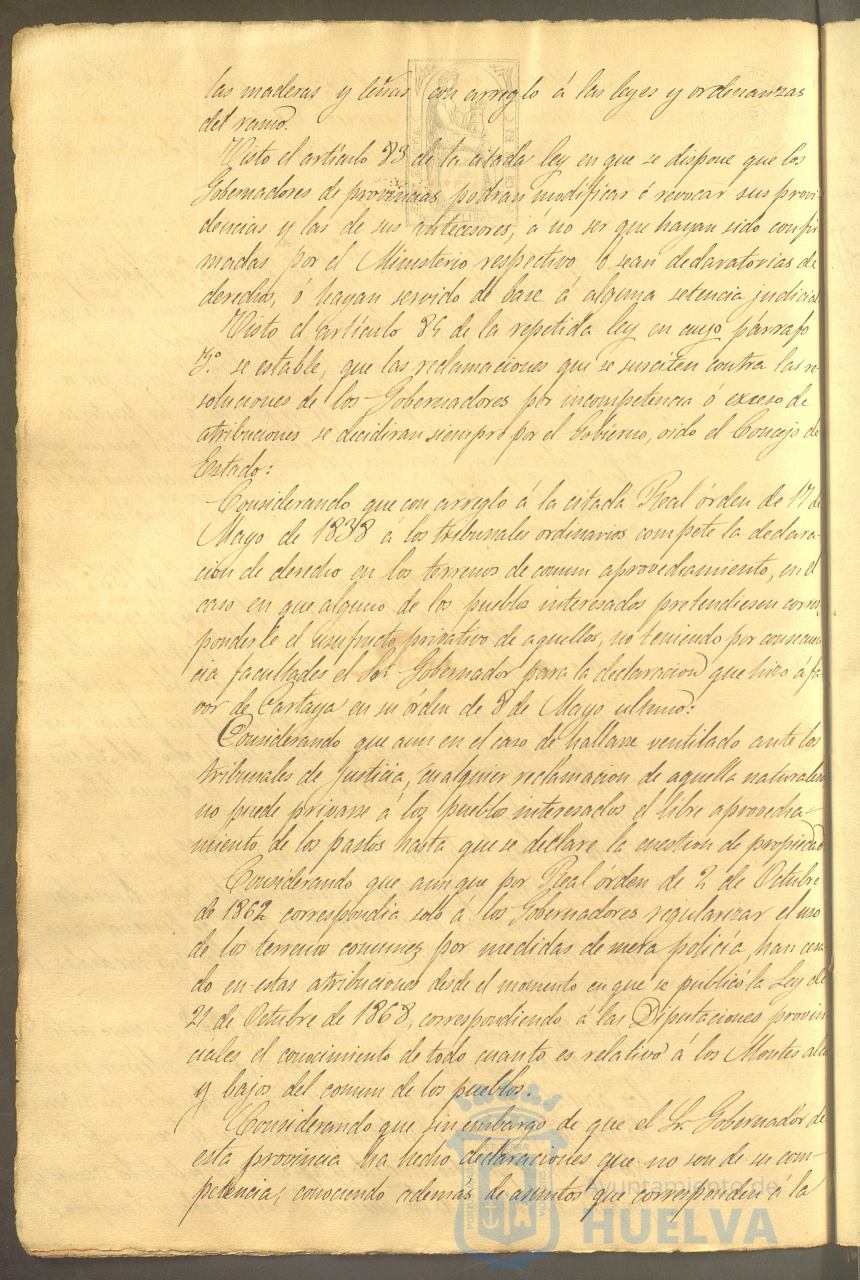 las maderas y leñas con arreglo á las leyes y ordenanzas
del ramo.
Visto el artículo 83 de la citada ley en que se dispone que los
Gobernadores de provincias podran modificar ó revocar sus provi-
dencias y las de sus antecesores, á no ser que hayan sido confir
madas por el Ministerio respectivo, ó sean declaratorias de
derechos, ó hayan servido de base á alguna setencia judicial
Visto el artículo 84 de la repetida ley en cuyo párrafo
3.º se estable, que las reclamaciones que se susciten contra las re
soluciones de los Gobernadores por incompetencia ó exceso de
atribuciones se decidiran siempre por el Gobierno, oido el Concejo de
Estado:
Considerando que con arreglo á la citada Real órden de 17 de
Mayo de 1838 á los tribunales ordinarios compete la declara-
cion de derecho en los terrenos de comun aprovediamiento, en el
caso en que alguno de los pueblos interesados pretendiesen corres-
ponderle el usufructo privativo de aquellos, no teniendo por consecuen
cia facultades el Sor Gobernador para la declaracion que hizo á fa
vor de Cartaya en su órden de 8 de Mayo ultimo:
Considerando que aun en el caso de hallarse ventilado ante los
tribunales de Justicia, cualquier reclamacion de aquella naturaleza
no puede privarse á los pueblos interesados el libre aprovedia-
miento de los pastos hasta que se declare la cuestion de propiedad
Considerando que aunque por Real órden de 2 de Octubre
de 1862 correspondia solo á los Gobernadores regularizar el uso
de los terrenos comunes por medidas de mera policía, han cesa
do en estas atribuciones desde el momento en que se publicó la Ley de
21 de Octubre de 1868, correspondiendo á las Diputaciones provin
ciales el conocimiento de todo cuanto es relativo á los Montes altos
y bajos del comun de los pueblos.
Considerando que sin embargo de que el Sr. Gobernador de
esta provincia ha hecho declaraciones que no son de su com-
petencia, conociendo además de asuntos que corresponden á la
Ayuntamiento de
HUELVA